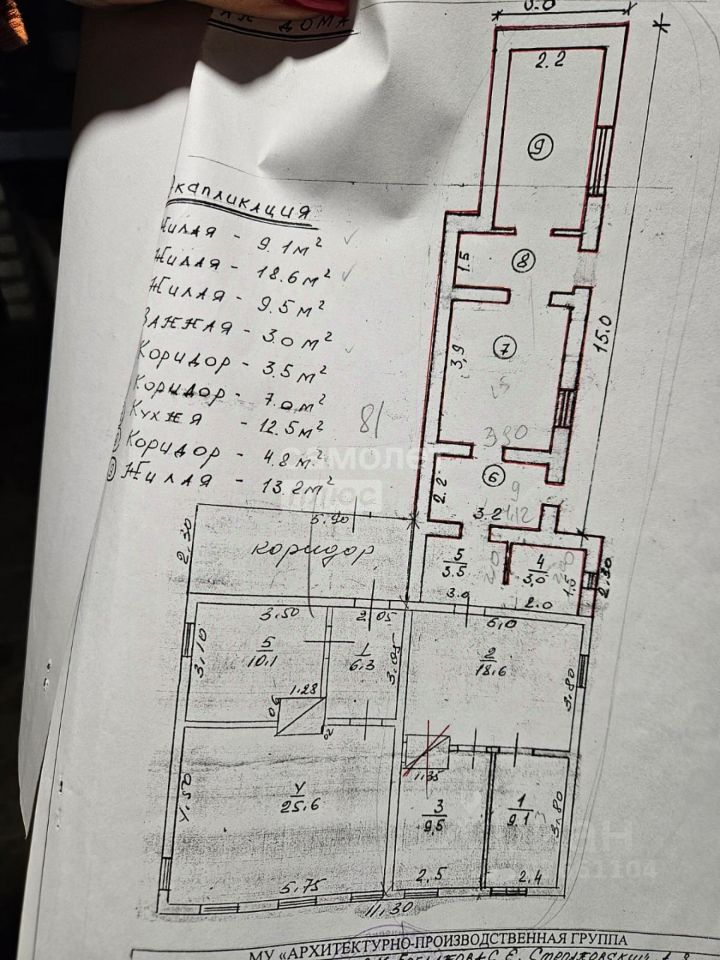 ДОМА
Экспликация
Жилая - 9.1 м²
Жилая - 18.6 м²
Жилая - 9.5 м²
Ванная - 3.0 м²
Коридор - 3.5 м²
Коридор - 7.0 м²
Кухня - 12.5 м²
Коридор - 4.8 м²
Жилая - 13.2 м²
81
самолет
плюс
2.2
9
1.5
8
15.0
3,9
7
3,90
6
2.2
9
3.2
1,12
5
3.5
3.0
4
3,0
1.5
2.0
2.30
2,30
5.90
коридор
3.50
2.05
6,0
3,10
5
10,1
1
6.3
3.05
2
18.6
3.80
1.28
1.35
4.50
4
25,6
3
9.5
1
9.1
3,80
5.75
2.5
2.4
11.30
МУ «АРХИТЕКТУРНО-ПРОИЗВОДСТВЕННАЯ ГРУППА